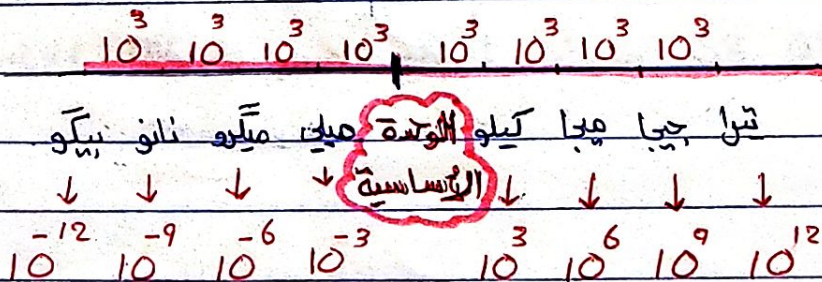 10³ 10³ 10³ 10³ 10³ 10³ 10³ 10³
تيرا جيجا ميجا كيلو الوحدة ميلي ميكرو نانو بيكو
الأساسية
↓ ↓ ↓ ↓ ↓ ↓ ↓ ↓
10⁻¹² 10⁻⁹ 10⁻⁶ 10⁻³ 10³ 10⁶ 10⁹ 10¹²